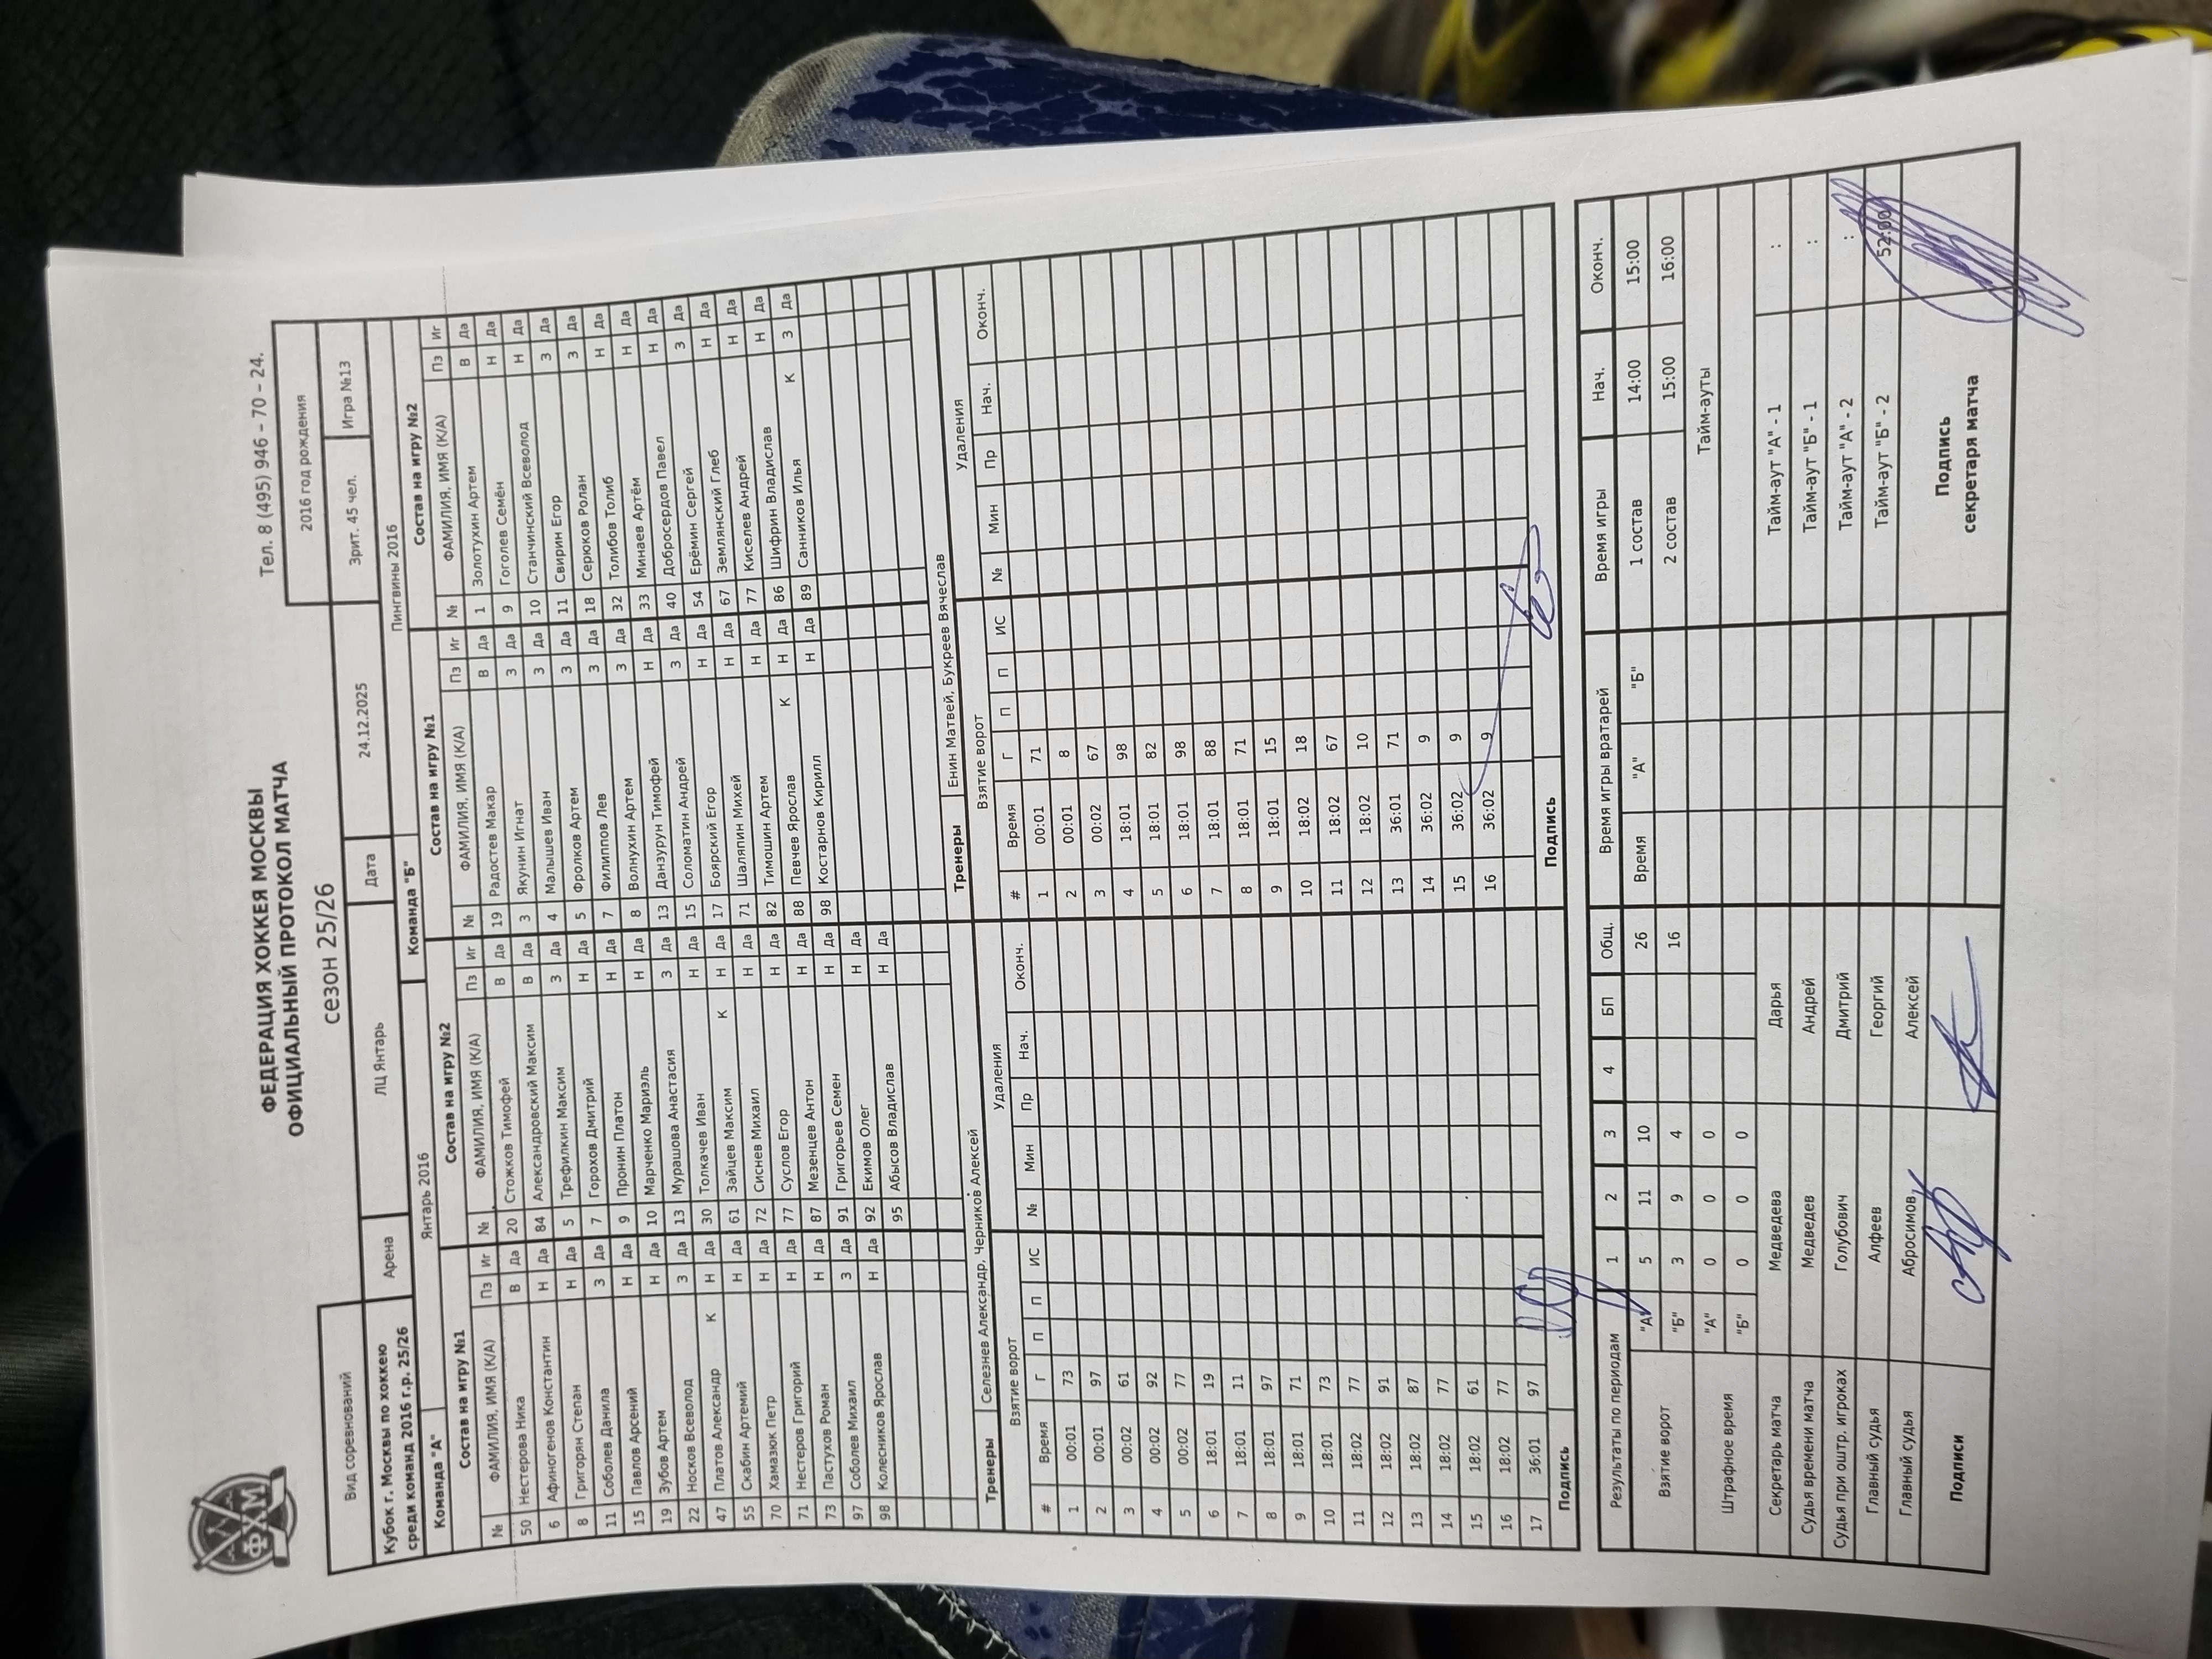 ФХМ
Тел. 8 (495) 946 – 70 – 24.
ФЕДЕРАЦИЯ ХОККЕЯ МОСКВЫ
ОФИЦИАЛЬНЫЙ ПРОТОКОЛ МАТЧА
сезон 25/26
2016 год рождения
Вид соревнований
Кубок г. Москвы по хоккею
среди команд 2016 г.р. 25/26
Арена ЛЦ Янтарь Дата 24.12.2025 Зрит. 45 чел. Игра №13
Команда "А" Янтарь 2016 Команда "Б" Пингвины 2016
Состав на игру №1 Состав на игру №2 Состав на игру №1 Состав на игру №2
№ ФАМИЛИЯ, ИМЯ (К/А) Пз Иг № ФАМИЛИЯ, ИМЯ (К/А) Пз Иг № ФАМИЛИЯ, ИМЯ (К/А) Пз Иг № ФАМИЛИЯ, ИМЯ (К/А) Пз Иг
50 Нестерова Ника В Да 20 Стожков Тимофей В Да 19 Радостев Макар В Да 1 Золотухин Артем В Да
6 Афиногенов Константин Н Да 84 Александровский Максим В Да 3 Якунин Игнат З Да 9 Гоголев Семён Н Да
8 Григорян Степан Н Да 5 Трефилкин Максим З Да 4 Малышев Иван З Да 10 Станчинский Всеволод Н Да
11 Соболев Данила З Да 7 Горохов Дмитрий Н Да 5 Фролков Артем З Да 11 Свирин Егор З Да
15 Павлов Арсений Н Да 9 Пронин Платон Н Да 7 Филиппов Лев З Да 18 Серюков Ролан З Да
19 Зубов Артем Н Да 10 Марченко Мариэль Н Да 8 Волнухин Артем З Да 32 Толибов Толиб Н Да
22 Носков Всеволод З Да 13 Мурашова Анастасия З Да 13 Данзурун Тимофей Н Да 33 Минаев Артём Н Да
47 Платов Александр К Н Да 30 Толкачев Иван Н Да 15 Соломатин Андрей З Да 40 Добросердов Павел Н Да
55 Скабин Артемий Н Да 61 Зайцев Максим К Н Да 17 Боярский Егор Н Да 54 Ерёмин Сергей З Да
70 Хамазюк Петр Н Да 72 Сиснев Михаил Н Да 71 Шаляпин Михей Н Да 67 Землянский Глеб Н Да
71 Нестеров Григорий Н Да 77 Суслов Егор Н Да 82 Тимошин Артем Н Да 77 Киселев Андрей Н Да
73 Пастухов Роман Н Да 87 Мезенцев Антон Н Да 88 Певчев Ярослав К Н Да 86 Шифрин Владислав Н Да
97 Соболев Михаил З Да 91 Григорьев Семен Н Да 98 Костарнов Кирилл Н Да 89 Санников Илья К З Да
98 Колесников Ярослав Н Да 92 Екимов Олег Н Да
95 Абысов Владислав Н Да
Тренеры Селезнев Александр, Черников Алексей Тренеры Енин Матвей, Букреев Вячеслав
Взятие ворот Удаления Взятие ворот Удаления
# Время Г П П ИС № Мин Пр Нач. Оконч. # Время Г П П ИС № Мин Пр Нач. Оконч.
1 00:01 73 1 00:01 71
2 00:01 97 2 00:01 8
3 00:02 61 3 00:02 67
4 00:02 92 4 18:01 98
5 00:02 77 5 18:01 82
6 18:01 19 6 18:01 98
7 18:01 11 7 18:01 88
8 18:01 97 8 18:01 71
9 18:01 71 9 18:01 15
10 18:01 73 10 18:02 18
11 18:02 77 11 18:02 67
12 18:02 91 12 18:02 10
13 18:02 87 13 36:01 71
14 18:02 77 14 36:02 9
15 18:02 61 15 36:02 9
16 18:02 77 16 36:02 9
17 36:01 97
Подпись Подпись
Результаты по периодам 1 2 3 4 БП Общ. Время игры вратарей Время игры Нач. Оконч.
Взятие ворот "А" 5 11 10 26 Время "А" "Б" 1 состав 14:00 15:00
"Б" 3 9 4 16 2 состав 15:00 16:00
Штрафное время "А" 0 0 0 Тайм-ауты
"Б" 0 0 0
Секретарь матча Медведева Дарья Тайм-аут "А" - 1 :
Судья времени матча Медведев Андрей Тайм-аут "Б" - 1 :
Судья при оштр. игроках Голубович Дмитрий Тайм-аут "А" - 2 :
Главный судья Алфеев Георгий Тайм-аут "Б" - 2 52:00
Главный судья Абросимов Алексей
Подписи
Подпись
секретаря матча